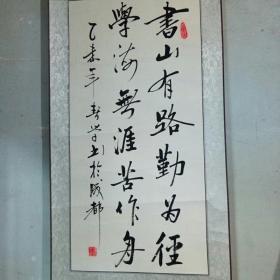 書山有路勤为徑
學海無涯苦作舟
乙春年 書於成都